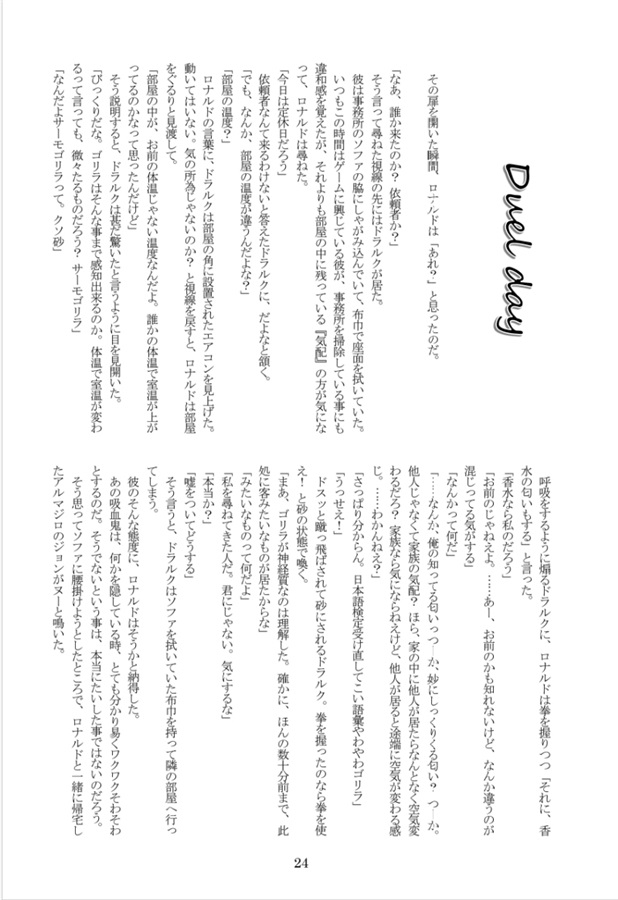 Duel day
その扉を開いた瞬間、ロナルドは「あれ？」と思ったのだ。
「なあ、誰か来たのか？ 依頼者か？」
そう言って尋ねた視線の先にはドラルクが居た。
彼は事務所のソファの脇にしゃがみ込んでいて、布巾で座面を拭いていた。
いつもこの時間はゲームに興じている彼が、事務所を掃除している事にも
違和感を覚えたが、それよりも部屋の中に残っている『気配』の方が気にな
って、ロナルドは尋ねた。
「今日は定休日だろう」
依頼者なんて来るわけないと答えたドラルクに、だよなと頷く。
「でも、なんか、部屋の温度が違うんだよな？」
「部屋の温度？」
ロナルドの言葉に、ドラルクは部屋の角に設置されたエアコンを見上げた。
動いてはいない。気の所為じゃないのか？ と視線を戻すと、ロナルドは部屋
をぐるりと見渡して。
「部屋の中が、お前の体温じゃない温度なんだよ。誰かの体温で室温が上が
ってるのかなって思ったんだけど」
そう説明すると、ドラルクは甚だ驚いたと言うように目を見開いた。
「びっくりだな。ゴリラはそんな事まで感知出来るのか。体温で室温が変わ
るって言っても、微々たるものだろう？ サーモゴリラ」
「なんだよサーモゴリラって。クソ砂」
呼吸をするように煽るドラルクに、ロナルドは拳を握りつつ「それに、香
水の匂いもする」と言った。
「香水なら私のだろう」
「お前のじゃねえよ。……あー、お前のかも知れないけど、なんか違うのが
混じってる気がする」
「なんかって何だ」
「……なんか、俺の知ってる匂いっつーか、妙にしっくりくる匂い？ つーか。
他人じゃなくて家族の気配？ ほら、家の中に他人が居たらなんとなく空気変
わるだろ？ 家族なら気にならねえけど、他人が居ると途端に空気が変わる感
じ。……わかんねえ？」
「さっぱり分からん。日本語検定受け直してこい語彙やわやわゴリラ」
「うっせえ！」
ドスッと蹴っ飛ばされて砂にされるドラルク。拳を握ったのなら拳を使
え！ と砂の状態で喚く。
「まあ、ゴリラが神経質なのは理解した。確かに、ほんの数十分前まで、此
処に客みたいなものが居たからな」
「みたいなものって何だよ」
「私を尋ねてきた人だ。君にじゃない。気にするな」
「本当か？」
「嘘をついてどうする」
そう言うと、ドラルクはソファを拭いていた布巾を持って隣の部屋へ行っ
てしまう。
彼のそんな態度に、ロナルドはそうかと納得した。
あの吸血鬼は、何かを隠している時、とても分かり易くワクワクそわそわ
とするのだ。そうでないという事は、本当にたいした事ではないのだろう。
そう思ってソファに腰掛けようとしたところで、ロナルドと一緒に帰宅し
たアルマジロのジョンがヌーと鳴いた。
24